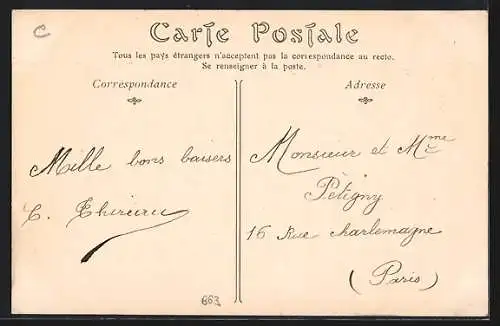 C
Carte Postale
Tous les pays étrangers n'acceptent pas la correspondance au recto.
Se renseigner à la poste.
Correspondance
Mille bons baisers
C.
Adresse
Monsieur et Mme
Pétigny
16 Rue Charlemagne
(Paris)
663